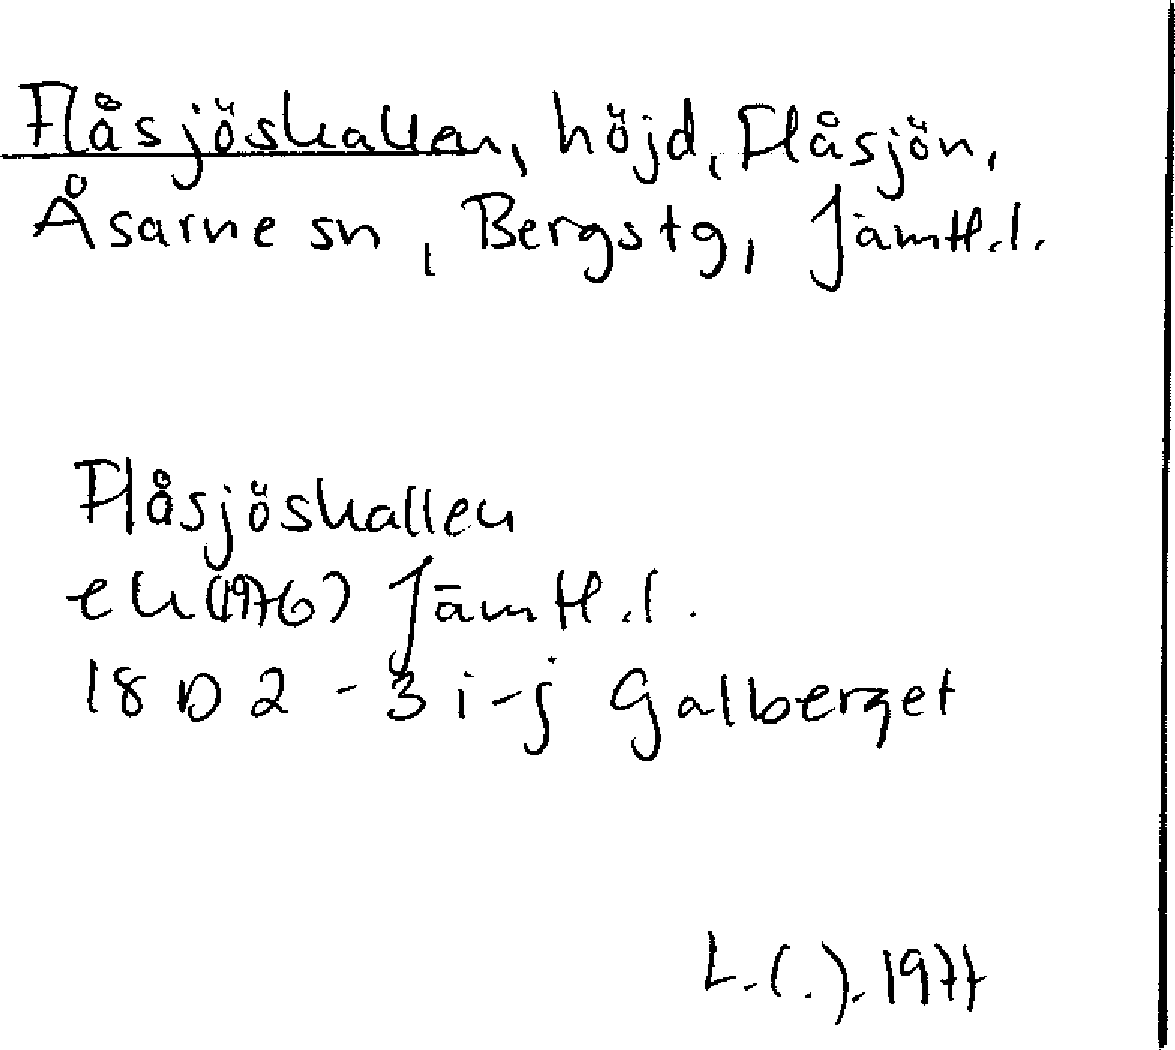 Flåsjöskallen, höjd, Flåsjön,
Åsarne sn, Bergstg, Jämtl.l.
Flåsjöskallen
ek (1976) Jämtl.l.
18 D 2-3 i-j Galberget
L.(.). 1977